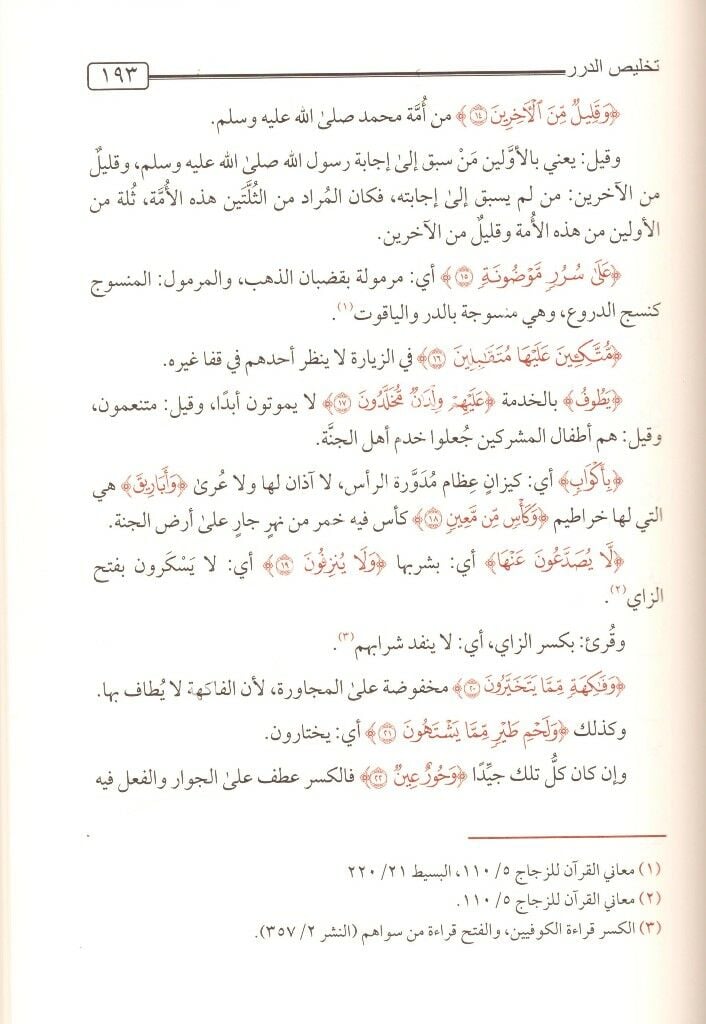 تخليص الدرر ١٩٣
﴿وَقَلِيلٌ مِّنَ ٱلْآخِرِينَ ١٤﴾ من أُمَّة محمد صلىٰ الله عليه وسلم.
وقيل: يعني بالأوَّلين مَنْ سبق إلىٰ إجابة رسول الله صلىٰ الله عليه وسلم، وقليلٌ
من الآخرين: من لم يسبق إلىٰ إجابته، فكان المُراد من الثُلَّتَين هذه الأمَّة، ثُلة من
الأولين من هذه الأُمة وقليلٌ من الآخرين.
﴿عَلَىٰ سُرُرٍ مَّوْضُونَةٍ ١٥﴾ أي: مرمولة بقضبان الذهب، والمرمول: المنسوج
كنسج الدروع، وهي منسوجة بالدر والياقوت(١).
﴿مُّتَّكِـِٔينَ عَلَيْهَا مُتَقَٰبِلِينَ ١٦﴾ في الزيارة لا ينظر أحدهم في قفا غيره.
﴿يَطُوفُ﴾ بالخدمة ﴿عَلَيْهِمْ وِلْدَٰنٌ مُّخَلَّدُونَ ١٧﴾ لا يموتون أبدًا، وقيل: متنعمون،
وقيل: هم أطفال المشركين جُعلوا خدم أهل الجنَّة.
﴿بِأَكْوَابٍ﴾ أي: كيزانٍ عِظام مُدَوَّرة الرأس، لا آذان لها ولا عُرىٰ ﴿وَأَبَارِيقَ﴾ هي
التي لها خراطيم ﴿وَكَأْسٍ مِّن مَّعِينٍ ١٨﴾ كأس فيه خمر من نهرٍ جارٍ علىٰ أرض الجنة.
﴿لَّا يُصَدَّعُونَ عَنْهَا﴾ أي: بشربها ﴿وَلَا يُنزِفُونَ ١٩﴾ أي: لا يَسْكَرون بفتح
الزاي(٢).
وقُرئ: بكسر الزاي، أي: لا ينفد شرابهم(٣).
﴿وَفَٰكِهَةٍ مِّمَّا يَتَخَيَّرُونَ ٢٠﴾ مخفوضة علىٰ المجاورة، لأن الفاكهة لا يُطاف بها.
وكذلك ﴿وَلَحْمِ طَيْرٍ مِّمَّا يَشْتَهُونَ ٢١﴾ أي: يختارون.
وإن كان كلُّ تلك جيِّدًا ﴿وَحُورٌ عِينٌ ٢٢﴾ فالكسر عطف علىٰ الجوار والفعل فيه
(١) معاني القرآن للزجاج ٥/ ١١٠، البسيط ٢١/ ٢٢٠
(٢) معاني القرآن للزجاج ٥/ ١١٠.
(٣) الكسر قراءة الكوفيين، والفتح قراءة من سواهم (النشر ٢/ ٣٥٧).